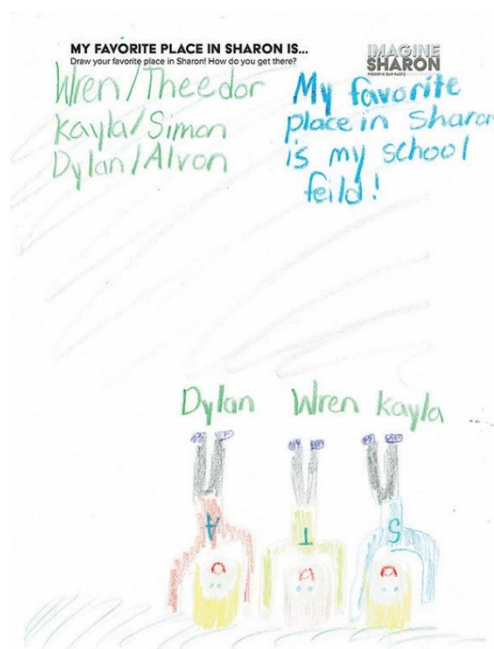 MY FAVORITE PLACE IN SHARON IS...
Draw your favorite place in Sharon! How do you get there?
IMAGINE
SHARON
Wren/Theedor
Kayla/Simon
Dylan/Alvon
My favorite
place in Sharon
is my school
feild!
Dylan Wren Kayla
A T S